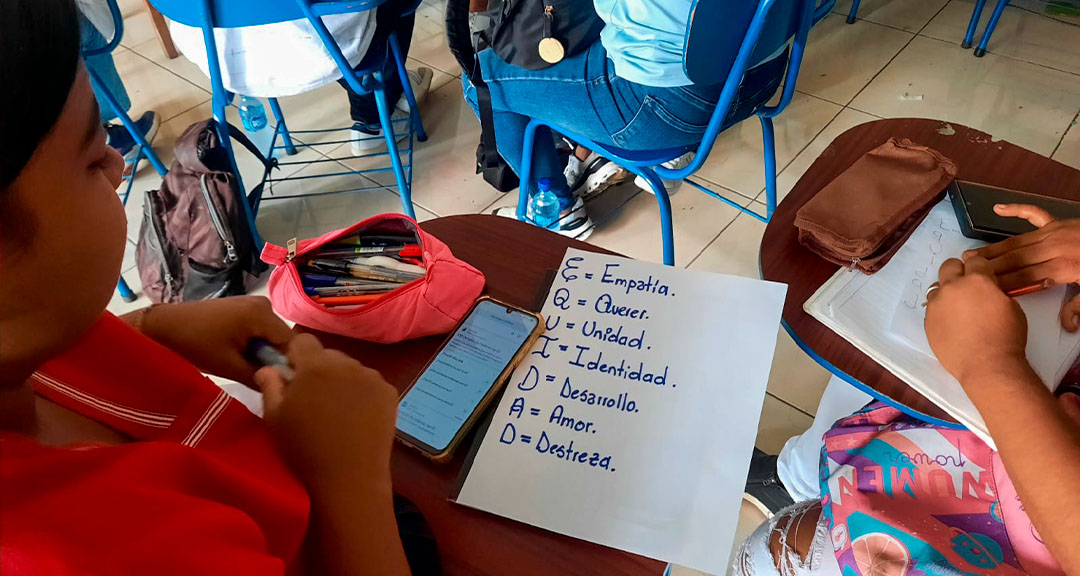 E = Empatía.
Q = Querer.
U = Unidad.
I = Identidad.
D = Desarrollo.
A = Amor.
D = Destreza.
WOMEN